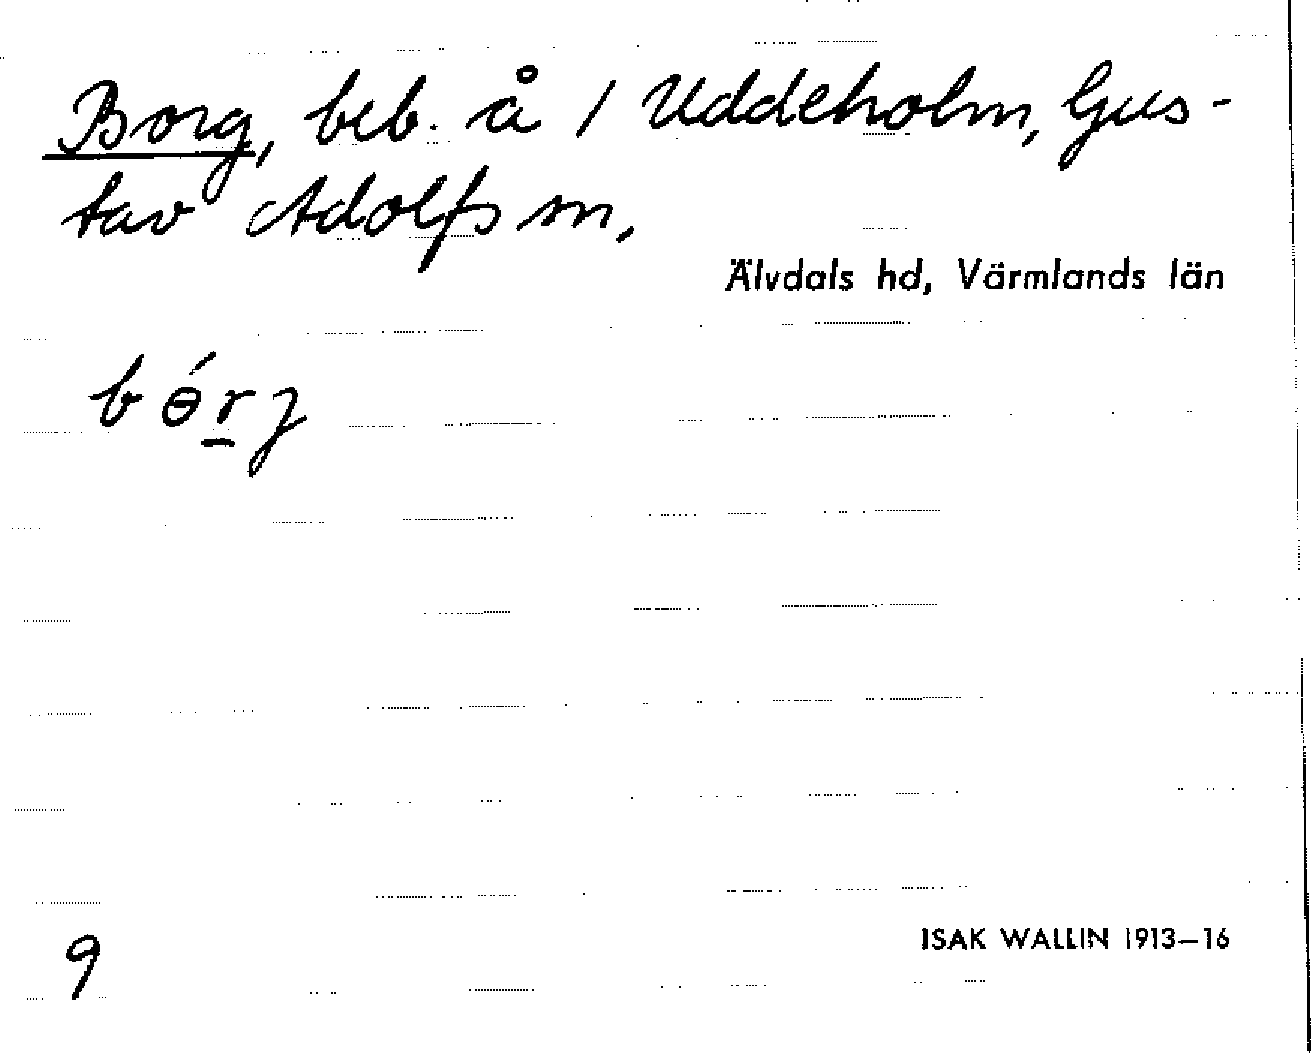 Borg, beb. å 1 Uddeholm, Gus-
tav Adolfs sn,
Älvdals hd, Värmlands län
bɵ́r̲ȷ
9
ISAK WALLIN 1913–16